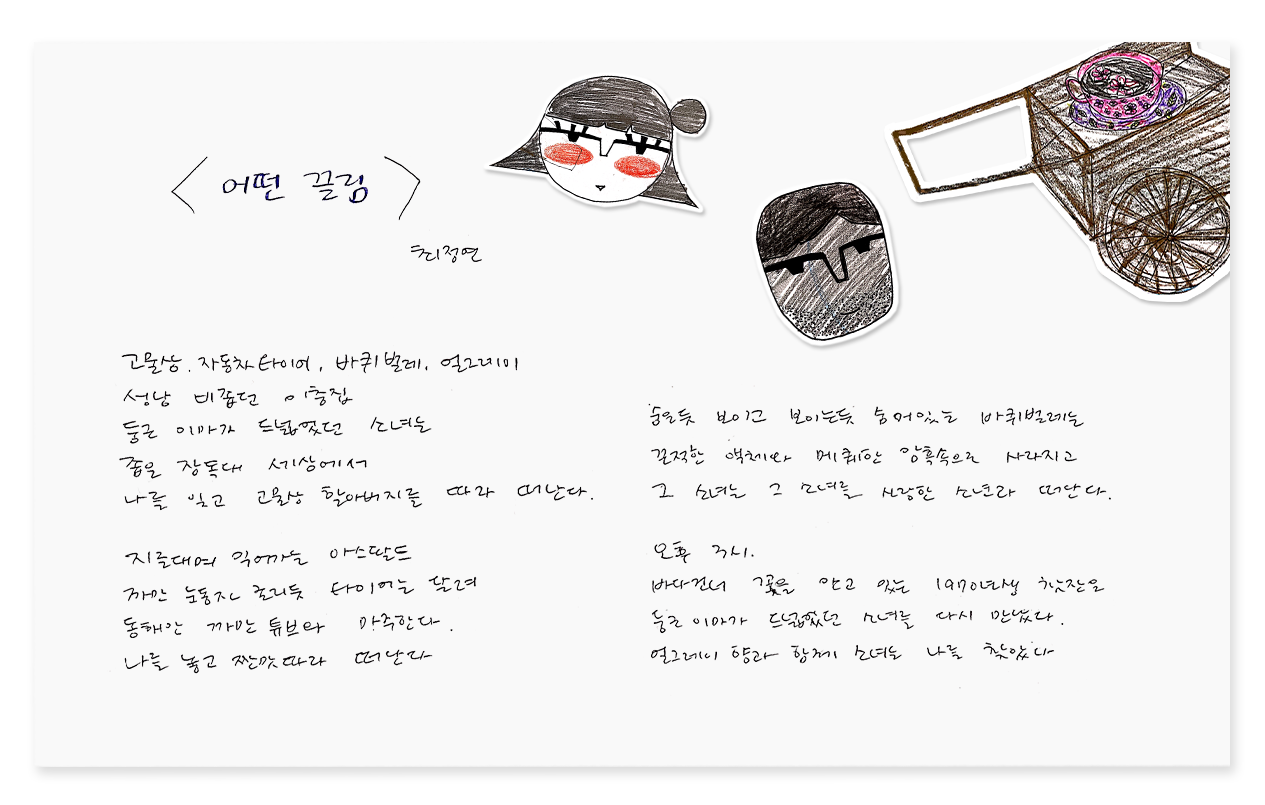 <어떤 끌림>
최정연
고물상. 자동차타이어, 바퀴벌레, 얼그레이
성남 비좁던 이층집
둥근 이마가 드넓었던 소녀는
좁은 장독대 세상에서
나를 잊고 고물상 할아버지를 따라 떠난다.
지글대며 익어가는 아스팔트
까만 눈동자 흐리듯 타이어는 달려
동해안 까만 튜브와 마주한다.
나를 놓고 짠맛따라 떠난다
숨은듯 보이고 보이는듯 숨어있는 바퀴벌레는
끈적한 액체와 메퀘한 암흑속으로 사라지고
그 소녀는 그 소녀를 사랑한 소년과 떠난다.
오후 3시.
바다건너 꽃을 안고 있는 1970년생 찻잔은
둥근 이마가 드넓었던 소녀를 다시 만났다.
얼그레이 향과 함께 소녀는 나를 찾았다